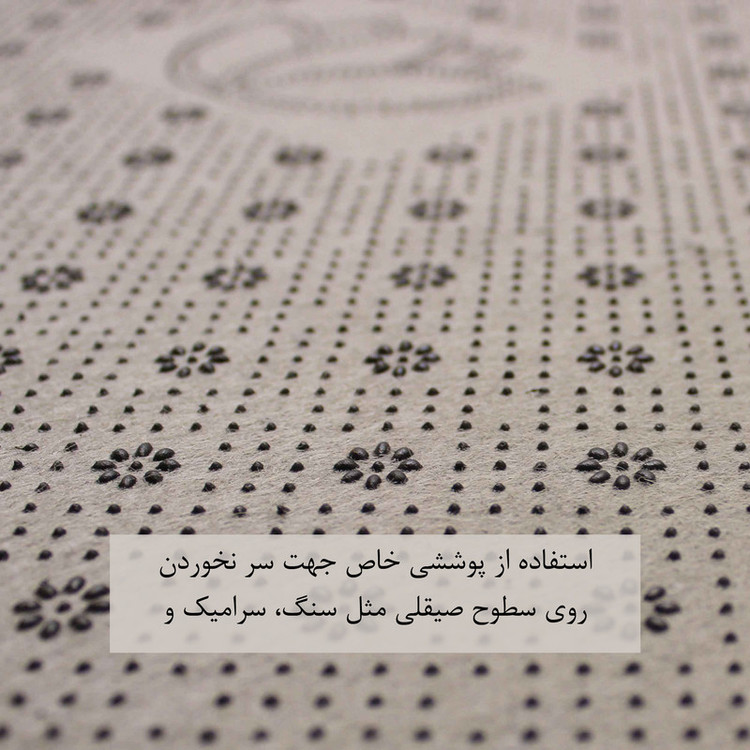 استفاده از پوششی خاص جهت سر نخوردن
روی سطوح صیقلی مثل سنگ، سرامیک و